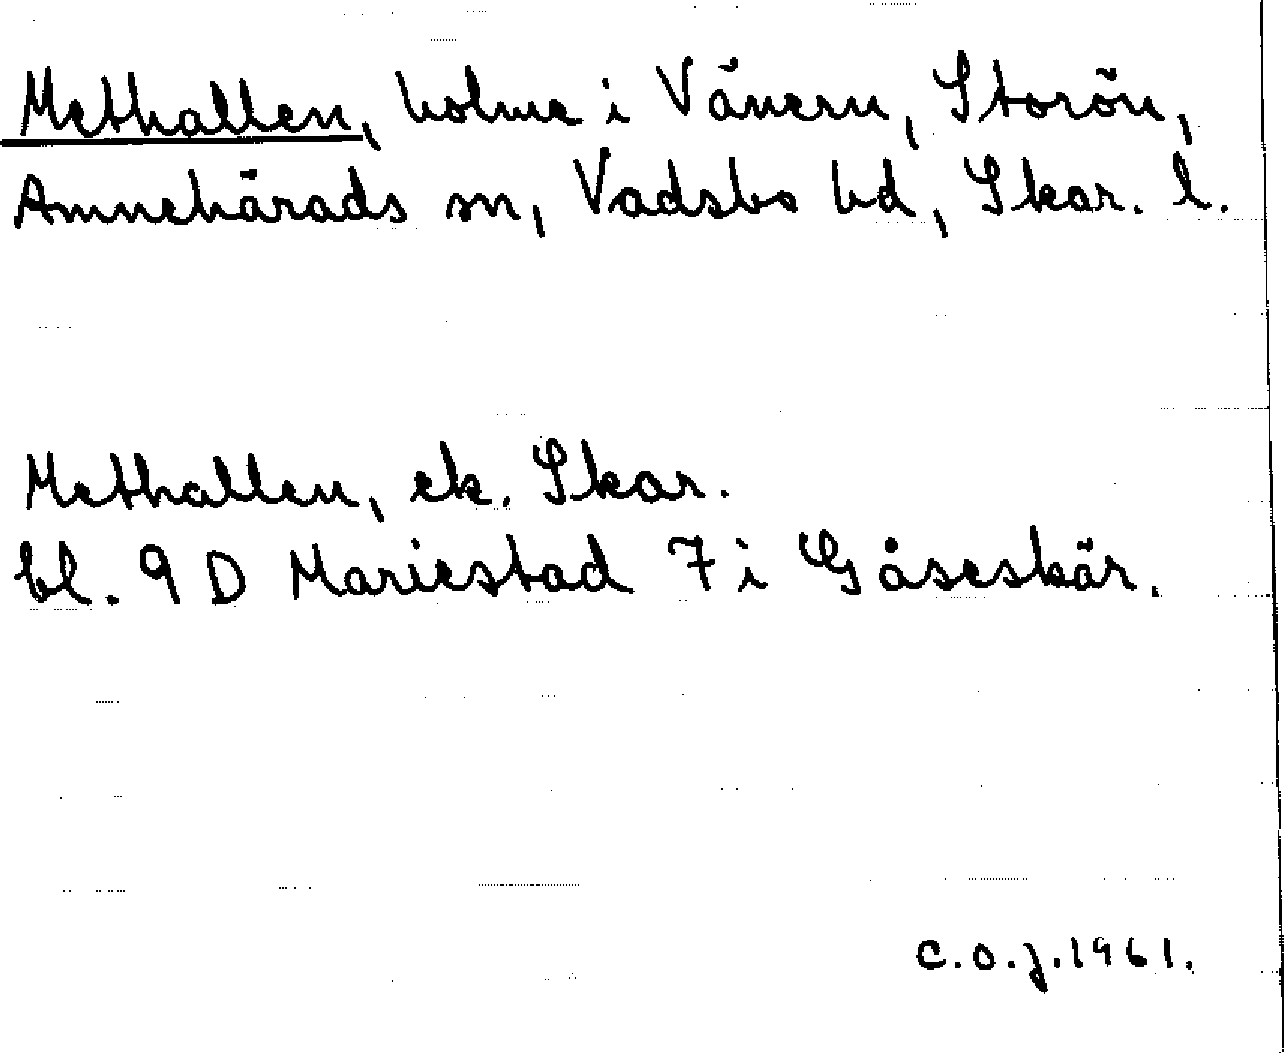 Methallen, holme i Vänern, Storön,
Amnehärads sn, Vadsbo hd, Skar. l.
Methallen, ek. Skar.
bl. 9 D Mariestad 7 i Gåseskär.
C.O.J. 1961.